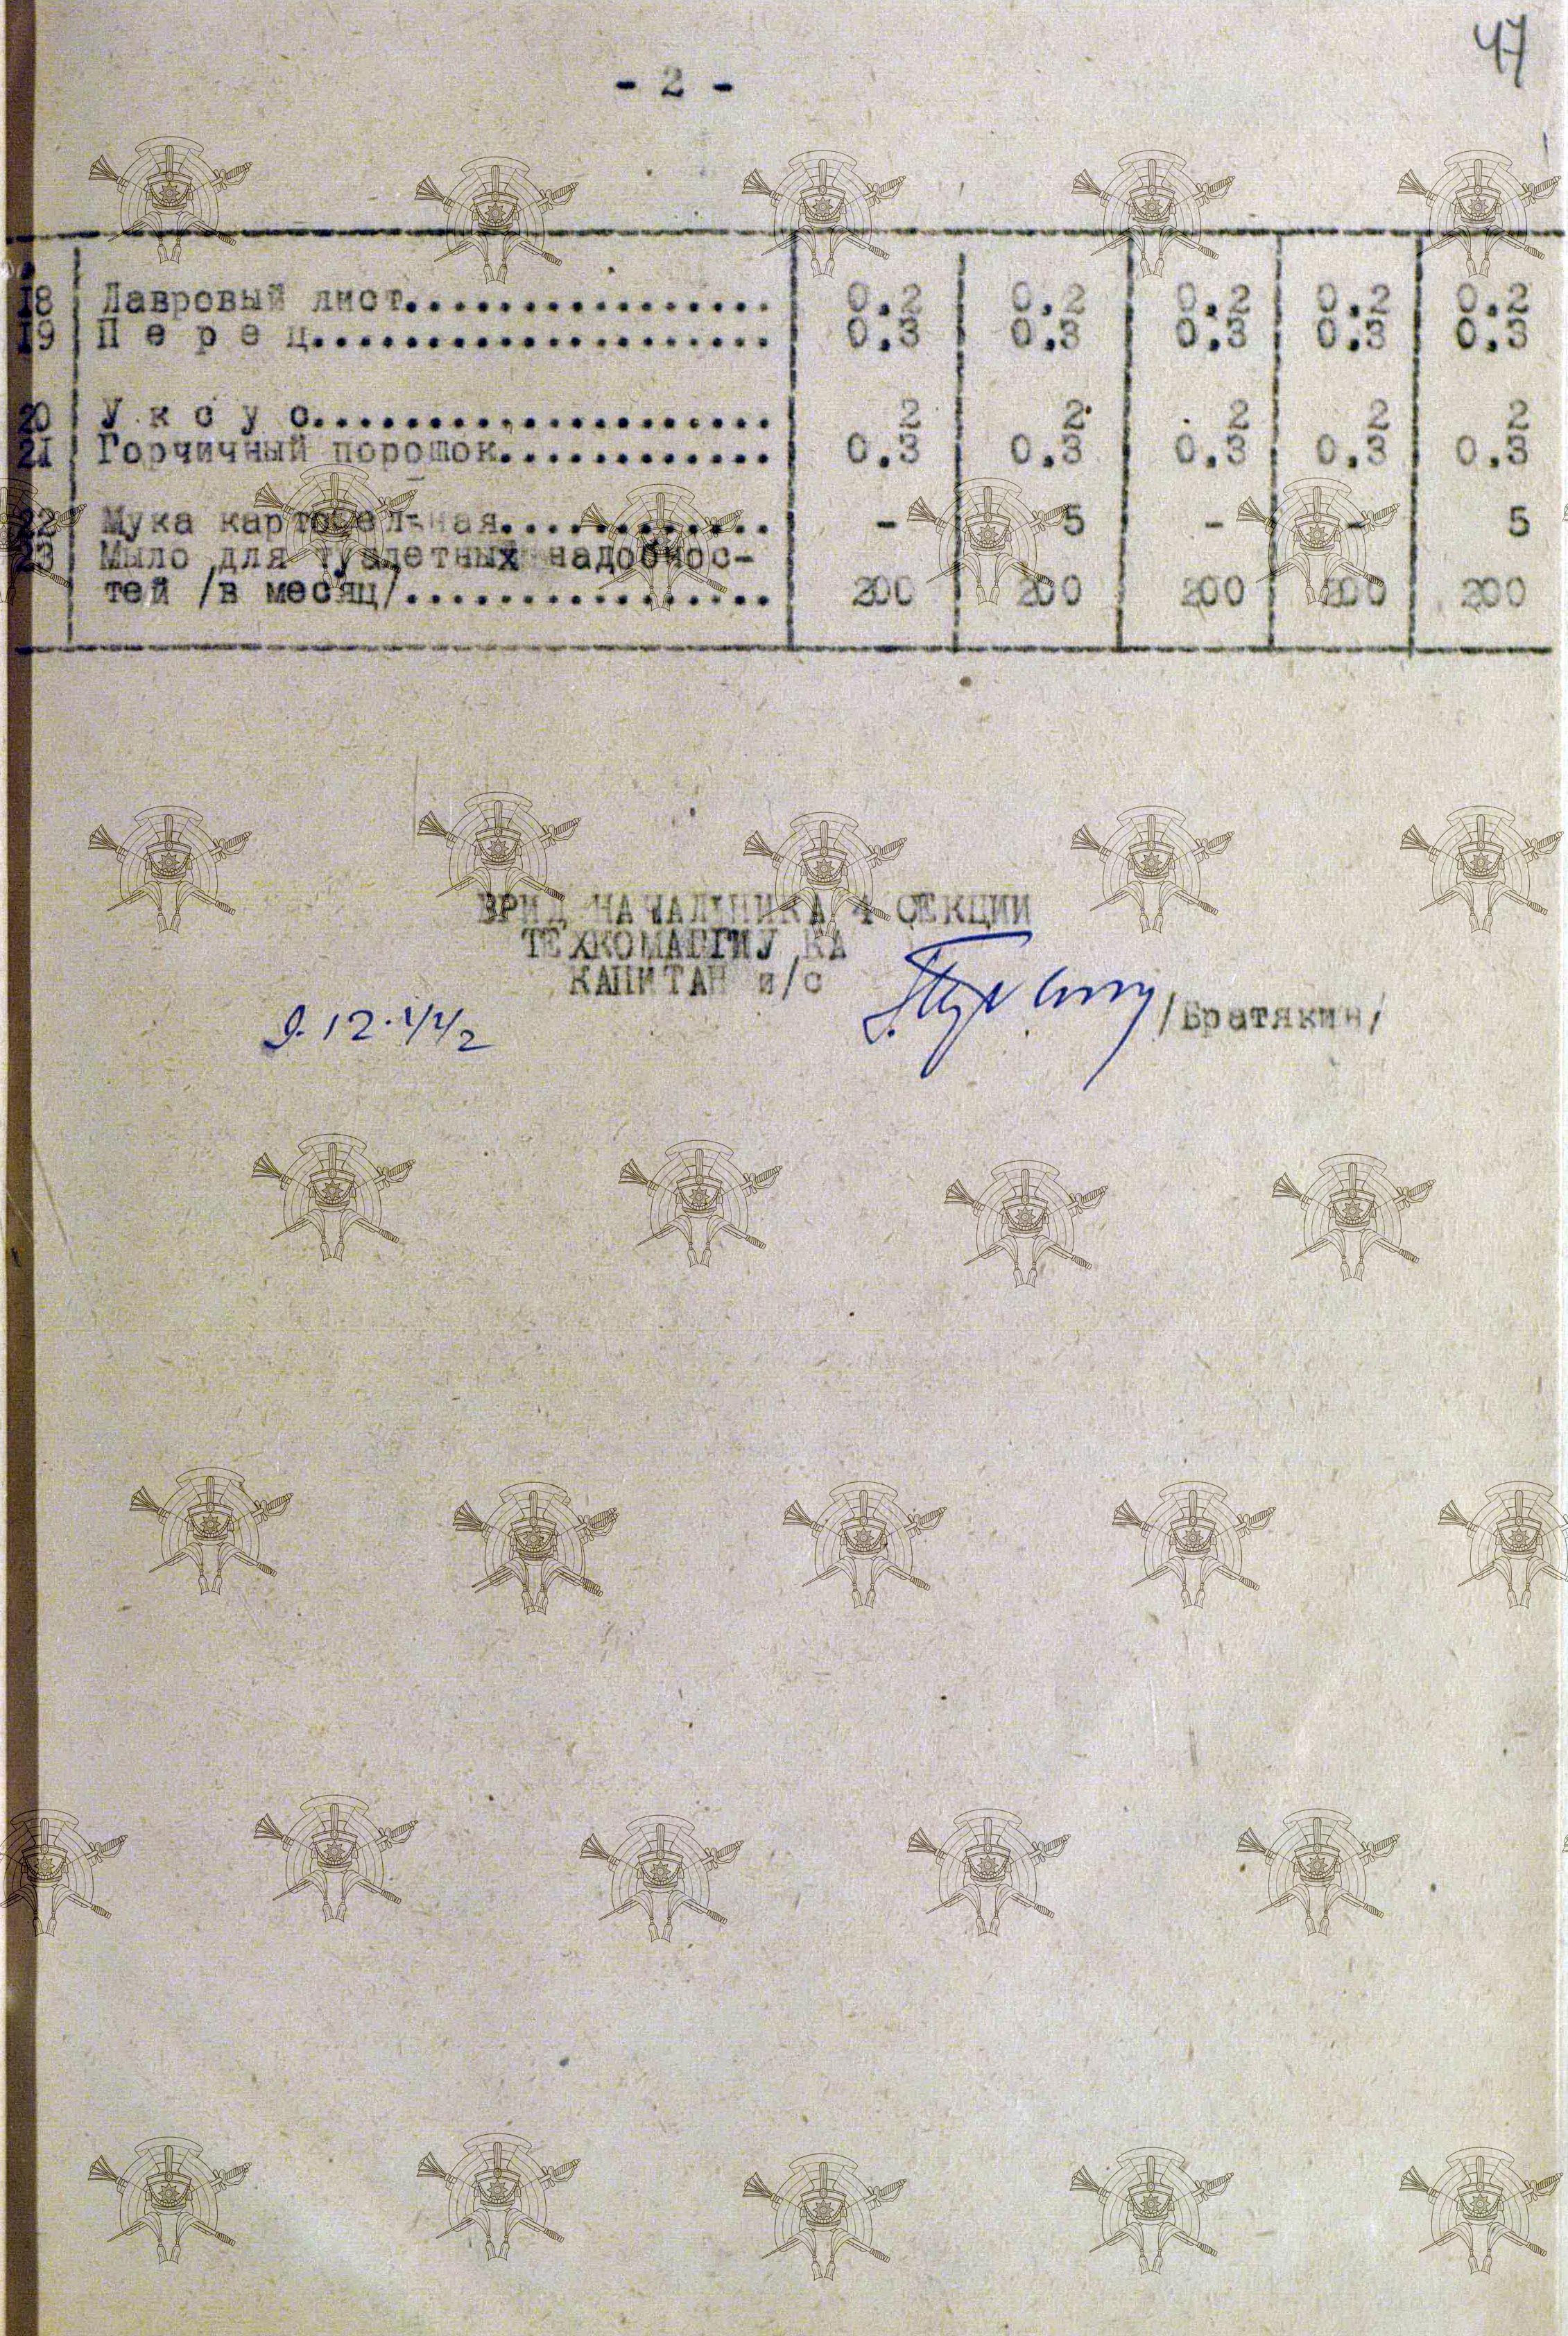 47
- 2 -
18 Лавровый лист................. 0.2 0.2 0.2 0.2 0.2
19 П е р е ц..................... 0.3 0.3 0.3 0.3 0.3
20 У к с у с..................... 2 2 2 2 2
21 Горчичный порошок............ 0.3 0.3 0.3 0.3 0.3
22 Мука картофельная............ - 5 - - 5
23 Мыло для туалетных надобнос-
тей /в месяц/................ 200 200 200 200 200
ВРИД НАЧАЛЬНИКА 4 СЕКЦИИ
КАПИТАН и/с
/Братякин/
9.12.44